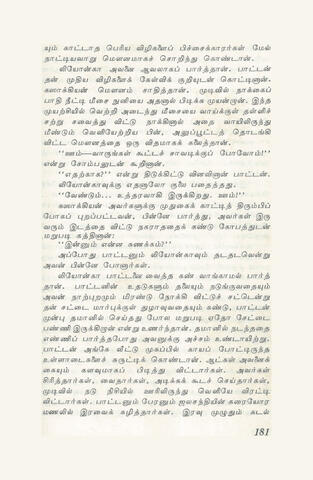 யும் காட்டாத பெரிய விழிகளைப் பிச்சைக்காரர்கள் மேல்
நாட்டியவாறு மௌனமாகச் சொறிந்து கொண்டான்.
லியோன்கா அவனை ஆவலாகப் பார்த்தான். பாட்டன்
தன் முதிய விழிகளைக் கேள்விக் குறியுடன் கொட்டினான்.
கஸாக்கியன் மௌனம் சாதித்தான். முடிவில் நாக்கைப்
பாதி நீட்டி மீசை நுனியை அதனால் பிடிக்க முயன்றான். இந்த
முயற்சியில் வெற்றி அடைந்து மீசையை வாய்க்குள் தள்ளிச்
சற்று சவைத்து விட்டு நாக்கினால் அதை வாயிலிருந்து
மீண்டும் வெளியேற்றிய பின், அலுப்பூட்டத் தொடங்கி
விட்ட மௌனத்தை ஒரு விதமாகக் கலைத்தான்.
“ஊம்—வாருங்கள் கூட்டச் சாவடிக்குப் போவோம்!”
என்று சோம்பலுடன் கூறினான்.
“எதற்காக?” என்று திடுக்கிட்டு வினவினான் பாட்டன்.
லியோன்காவுக்கு எதனாலோ குலை பதைத்தது.
“வேண்டும்... உத்தரவாகி இருக்கிறது. ஊம்!”
கஸாக்கியன் அவர்களுக்கு முதுகைக் காட்டித் திரும்பிப்
போகப் புறப்பட்டவன், பின்னே பார்த்து, அவர்கள் இரு
வரும் இடத்தை விட்டு நகராததைக் கண்டு கோபத்துடன்
மறுபடி கத்தினான்:
“இன்னும் என்ன சுணக்கம்?”
அப்போது பாட்டனும் லியோன்காவும் தடதடவென்று
அவன் பின்னே போனார்கள்.
லியோன்கா பாட்டனை வைத்த கண் வாங்காமல் பார்த்
தான். பாட்டனின் உதடுகளும் தலையும் நடுங்குவதையும்
அவன் நாற்புறமும் மிரண்டு நோக்கி விட்டுச் சட்டென்று
தன் சட்டை மார்புக்குள் துழாவுவதையும் கண்டு, பாட்டன்
முன்பு தமானில் செய்தது போல மறுபடி ஏதோ சேட்டை
பண்ணி இருக்கிறான் என்று உணர்ந்தான். தமானில் நடந்ததை
எண்ணிப் பார்த்தபோது அவனுக்கு அச்சம் உண்டாயிற்று.
பாட்டன் அங்கே வீட்டு முகப்பில் காயப் போட்டிருந்த
உள்ளாடைகளைச் சுருட்டிக் கொண்டான். ஆட்கள் அவனைக்
கையும் களவுமாகப் பிடித்து விட்டார்கள். அவர்கள்
சிரித்தார்கள், வைதார்கள், அடிக்கக் கூடச் செய்தார்கள்,
முடிவில் நடு நிசியில் ஊரிலிருந்து வெளியே விரட்டி
விட்டார்கள். பாட்டனும் பேரனும் ஜலசந்தியின் கரையோர
மணலில் இரவைக் கழித்தார்கள். இரவு முழுதும் கடல்
181